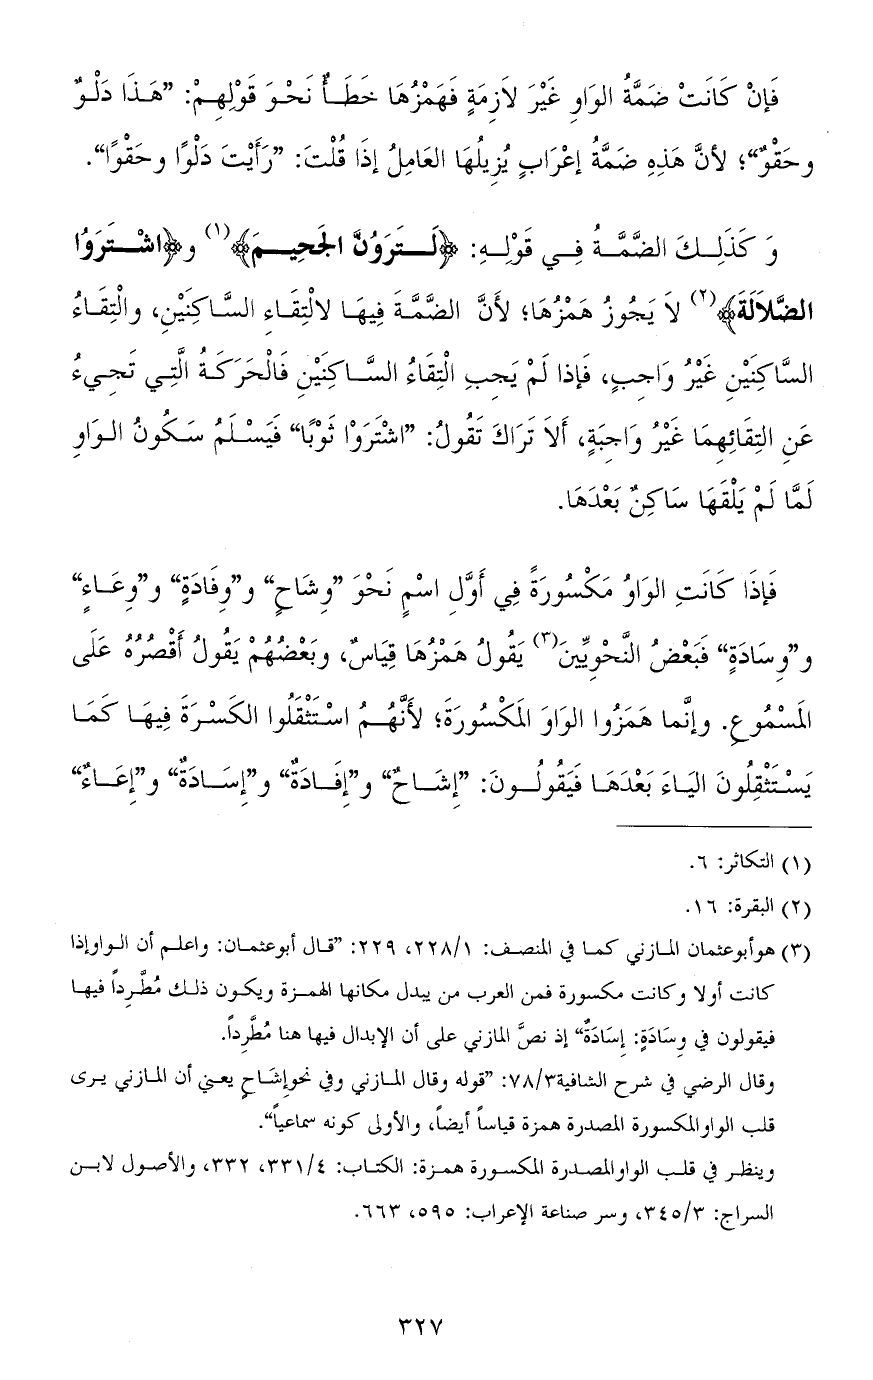 فَإنْ كَانَتْ ضَمَّةُ الوَاوِ غَيْرَ لاَزِمَةٍ فَهَمْزُهَا خَطَأٌ نَحْوَ قَوْلِهِمْ: ”هَذَا دَلْوٌ
وحَقْوٌ“؛ لأنَّ هَذِهِ ضَمَّةُ إعْرَابٍ يُزِيلُهَا العَامِلُ إذَا قُلْتَ: ”رَأَيْتَ دَلْوًا وحَقْوًا“.
وَ كَذَلِكَ الضَّمَّةُ فِي قَوْلِهِ: ﴿لَتَرَوُنَّ الجَحِيمَ﴾(١) و﴿اشْتَرَوُا
الضَّلاَلَةَ﴾(٢) لاَ يَجُوزُ هَمْزُهَا؛ لأنَّ الضَّمَّةَ فِيهَا لالْتِقَاءِ السَّاكِنَيْنِ، والْتِقَاءُ
السَّاكِنَيْنِ غَيْرُ وَاجِبٍ، فَإذا لَمْ يَجِبِ الْتِقَاءُ السَّاكِنَيْنِ فَالْحَرَكَةُ الَّتِي تَجِيءُ
عَنِ التِقَائِهِمَا غَيْرُ وَاجِبَةٍ، ألاَ تَرَاكَ تَقُولُ: ”اشْتَرَوْا ثَوْبًا“ فَيَسْلَمُ سَكُونُ الوَاوِ
لَمَّا لَمْ يَلْقَهَا سَاكِنٌ بَعْدَهَا.
فَإذَا كَانَتِ الوَاوُ مَكْسُورَةً فِي أَوَّلِ اسْمٍ نَحْوَ ”وِشَاحٍ“ و”وِفَادَةٍ“ و”وِعَاءٍ“
و”وِسَادَةٍ“ فَبَعْضُ النَّحْوِيِّينَ(٣) يَقُولُ هَمْزُهَا قِيَاسٌ، وبَعْضُهُمْ يَقُولُ أَقْصُرُهُ عَلَى
المَسْمُوعِ. وإنَّما هَمَزُوا الوَاوَ المَكْسُورَةَ؛ لأَنَّهُمُ اسْتَثْقَلُوا الكَسْرَةَ فِيهَا كَمَا
يَسْتَثْقِلُونَ اليَاءَ بَعْدَهَا فَيَقُولُونَ: ”إشَاحٌ“ و”إفَادَةٌ“ و”إسَادَةٌ“ و”إعَاءٌ“
(١) التكاثر: ٦.
(٢) البقرة: ١٦.
(٣) هوأبوعثمان المازني كما في المنصف: ٢٢٨/١، ٢٢٩: ”قال أبوعثمان: واعلم أن الواوإذا
كانت أولا وكانت مكسورة فمن العرب من يبدل مكانها الهمزة ويكون ذلك مُطَّرِداً فيها
فيقولون في وِسَادَةٍ: إسَادَةٌ“ إذ نصَّ المازني على أن الإبدال فيها هنا مُطَّرِداً.
وقال الرضي في شرح الشافية٧٨/٣: ”قوله وقال المازني وفي نحوإشَاحٍ يعني أن المازني يرى
قلب الواوالمكسورة المصدرة همزة قياساً أيضاً، والأولى كونه سماعياً“.
وينظر في قلب الواوالمصدرة المكسورة همزة: الكتاب: ٣٣١/٤، ٣٣٢، والأصول لابن
السراج: ٣٤٥/٣، وسر صناعة الإعراب: ٥٩٥، ٦٦٣.
٣٢٧